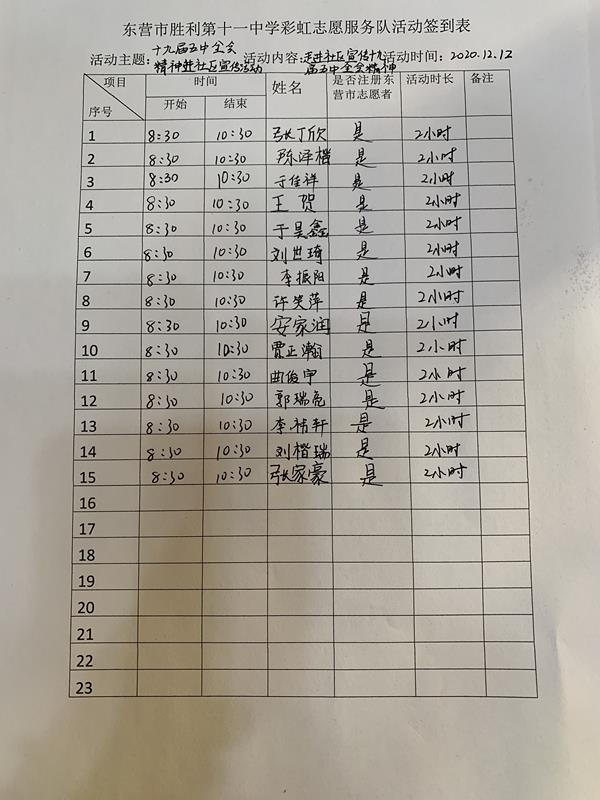 东营市胜利第十一中学彩虹志愿服务队活动签到表
活动主题：十九届五中全会精神进社区宣传活动 活动内容：走进社区宣传十九届五中全会精神 活动时间：2020.12.12
项目 时间 姓名 是否注册东营市志愿者 活动时长 备注
序号 开始 结束
1 8:30 10:30 张丁欣 是 2小时
2 8:30 10:30 陈泽楷 是 2小时
3 8:30 10:30 于佳祥 是 2小时
4 8:30 10:30 王贺 是 2小时
5 8:30 10:30 于昊鑫 是 2小时
6 8:30 10:30 刘世琦 是 2小时
7 8:30 10:30 李振阳 是 2小时
8 8:30 10:30 许笑萍 是 2小时
9 8:30 10:30 安家润 是 2小时
10 8:30 10:30 贾正瀚 是 2小时
11 8:30 10:30 曲俊宇 是 2小时
12 8:30 10:30 郭瑞尧 是 2小时
13 8:30 10:30 李祎轩 是 2小时
14 8:30 10:30 刘楷瑞 是 2小时
15 8:30 10:30 张家豪 是 2小时
16
17
18
19
20
21
22
23